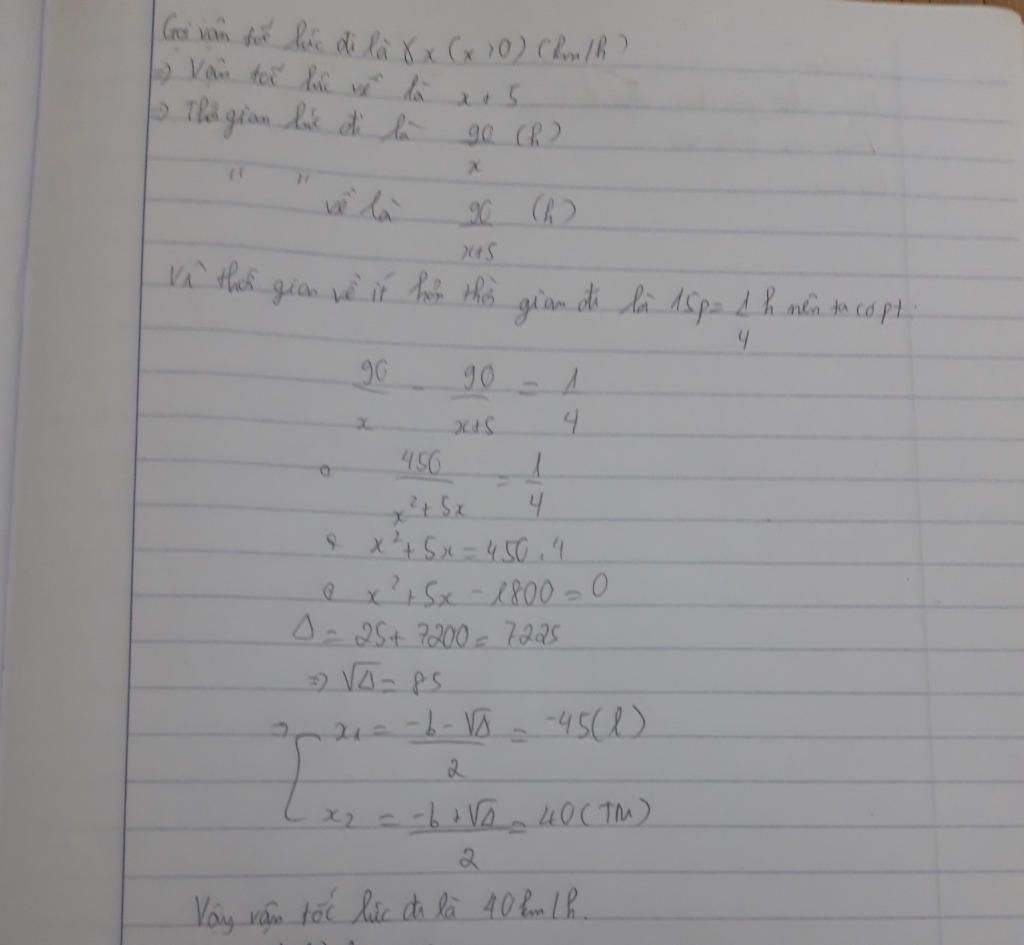 Gọi vận tốc lúc đi là x (x>0) (km/h)
=> Vận tốc lúc về là x+5
=> Thời gian lúc đi là 90/x (h)
" " về là 90/x+5 (h)
Vì thời gian về ít hơn thời gian đi là 15p = 1/4 h nên ta có pt:
90/x - 90/x+5 = 1/4
450/x²+5x = 1/4
x²+5x = 450.4
x²+5x-1800=0
Δ = 25+7200 = 7225
=> √Δ = 85
=> [ x₁ = -b-√Δ/2 = -45(l)
x₂ = -b+√Δ/2 = 40(TM)
Vậy vận tốc lúc đi là 40km/h.